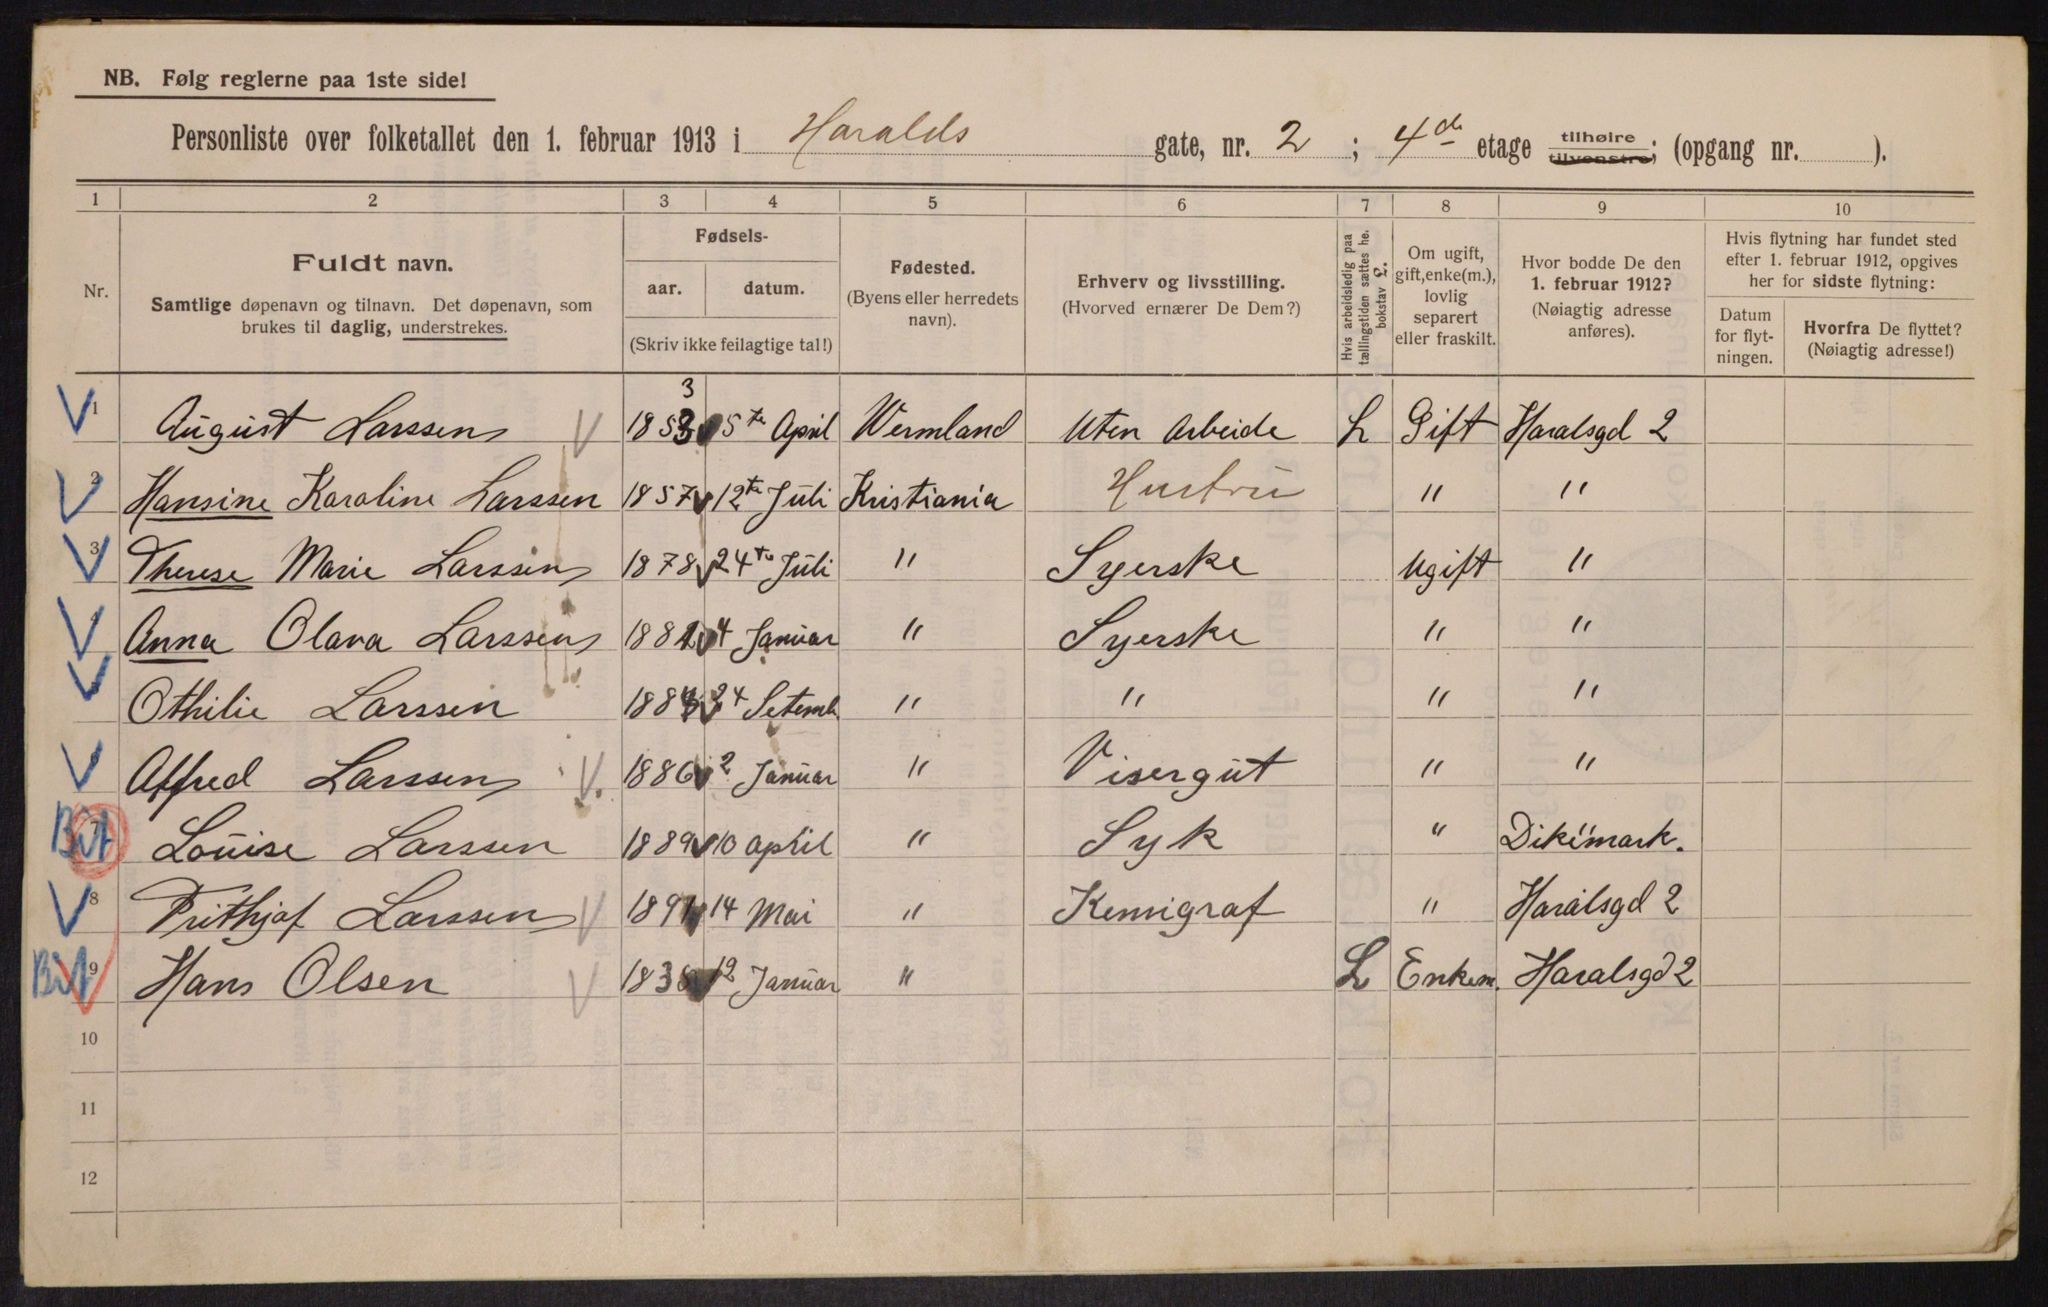 NB. Følg reglerne paa 1ste side!
Personliste over folketallet den 1. februar 1913 i Haralds gate, nr. 2 ; 4de etage tilhøire tilvenstre; (opgang nr. ).
1 2 3 4 5 6 7 8 9 10
Nr.
Fuldt navn.
Samtlige døpenavn og tilnavn. Det døpenavn, som
brukes til daglig, understrekes.
Fødsels-
aar. datum.
(Skriv ikke feilagtige tal!)
Fødested.
(Byens eller herredets
navn).
Erhverv og livsstilling.
(Hvorved ernærer De Dem?)
Hvis arbeidsledig paa
tællingstiden sættes he.
bokstav L.
Om ugift,
gift, enke(m.),
lovlig
separert
eller fraskilt.
Hvor bodde De den
1. februar 1912?
(Nøiagtig adresse
anføres).
Hvis flytning har fundet sted
efter 1. februar 1912, opgives
her for sidste flytning:
Datum
for flyt-
ningen.
Hvorfra De flyttet?
(Nøiagtig adresse!)
3
1 August Larssen V 1853 5te April Wermland Uten Arbeide L Gift Haralsgd 2
2 Hansine Karoline Larssen 1857 12te Juli Kristiania Hustru " "
3 Therese Marie Larssen 1878 24te Juli " Syerske Ugift "
4 Anna Olava Larssen 1881 4 Januar " Syerske " "
5 Othilie Larssen 24 Setemb " " " "
6 Alfred Larssen V. 1886 2 Januar " Visergut " "
7 Louise Larssen 1889 10 April " Syk " Dikemark.
8 Frithjof Larssen V 1891 14 Mai " Kemigraf " Haralsgd 2
9 Hans Olsen V 12 Januar " L Enkem. Haralsgd 2
10
11
12